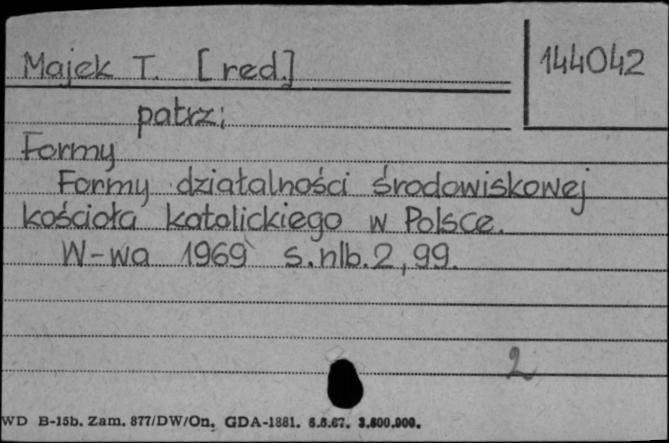 Majek T. [red.]
144042
patrz:
Formy
Formy działalności środowiskowej
kościoła katolickiego w Polsce.
W-wa 1969 s. nlb. 2, 99.
2
WD B-15b. Zam. 877/DW/On. GDA-1881. 6.6.67. 3.800.000.